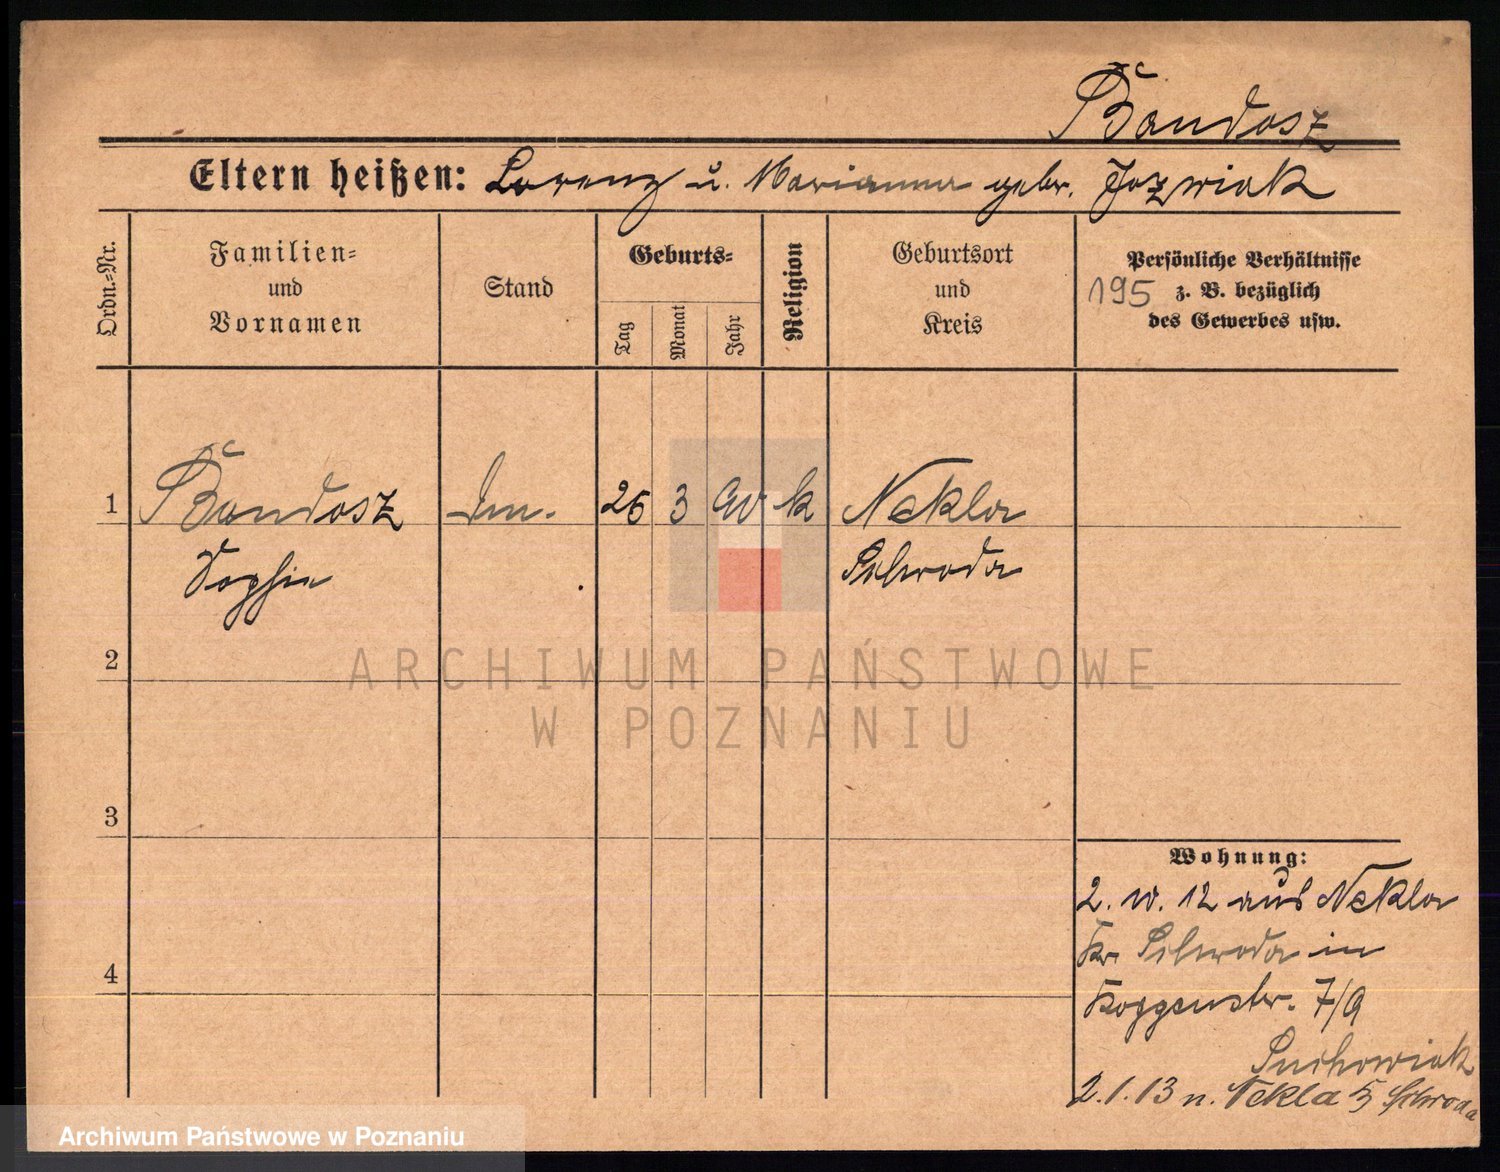 Bandosz
Eltern heißen: Lorenz u. Marianna gebr. Jozwiak
Ordn.-Nr.
Familien- und Vornamen
Stand
Geburts-
Tag
Monat
Jahr
Religion
Geburtsort und Kreis
Persönliche Verhältnisse
195 z. B. bezüglich
des Gewerbes usw.
1 Bandosz 26 3 90 k Nekla
Sophie Schroda
2
3
4
Wohnung:
2. 10. 12 aus Nekla
Kr. Schroda in
7/9
Suchowiak
2.1.13 n. Nekla Schroda
ARCHIWUM PAŃSTWOWE
W POZNANIU
Archiwum Państwowe w Poznaniu